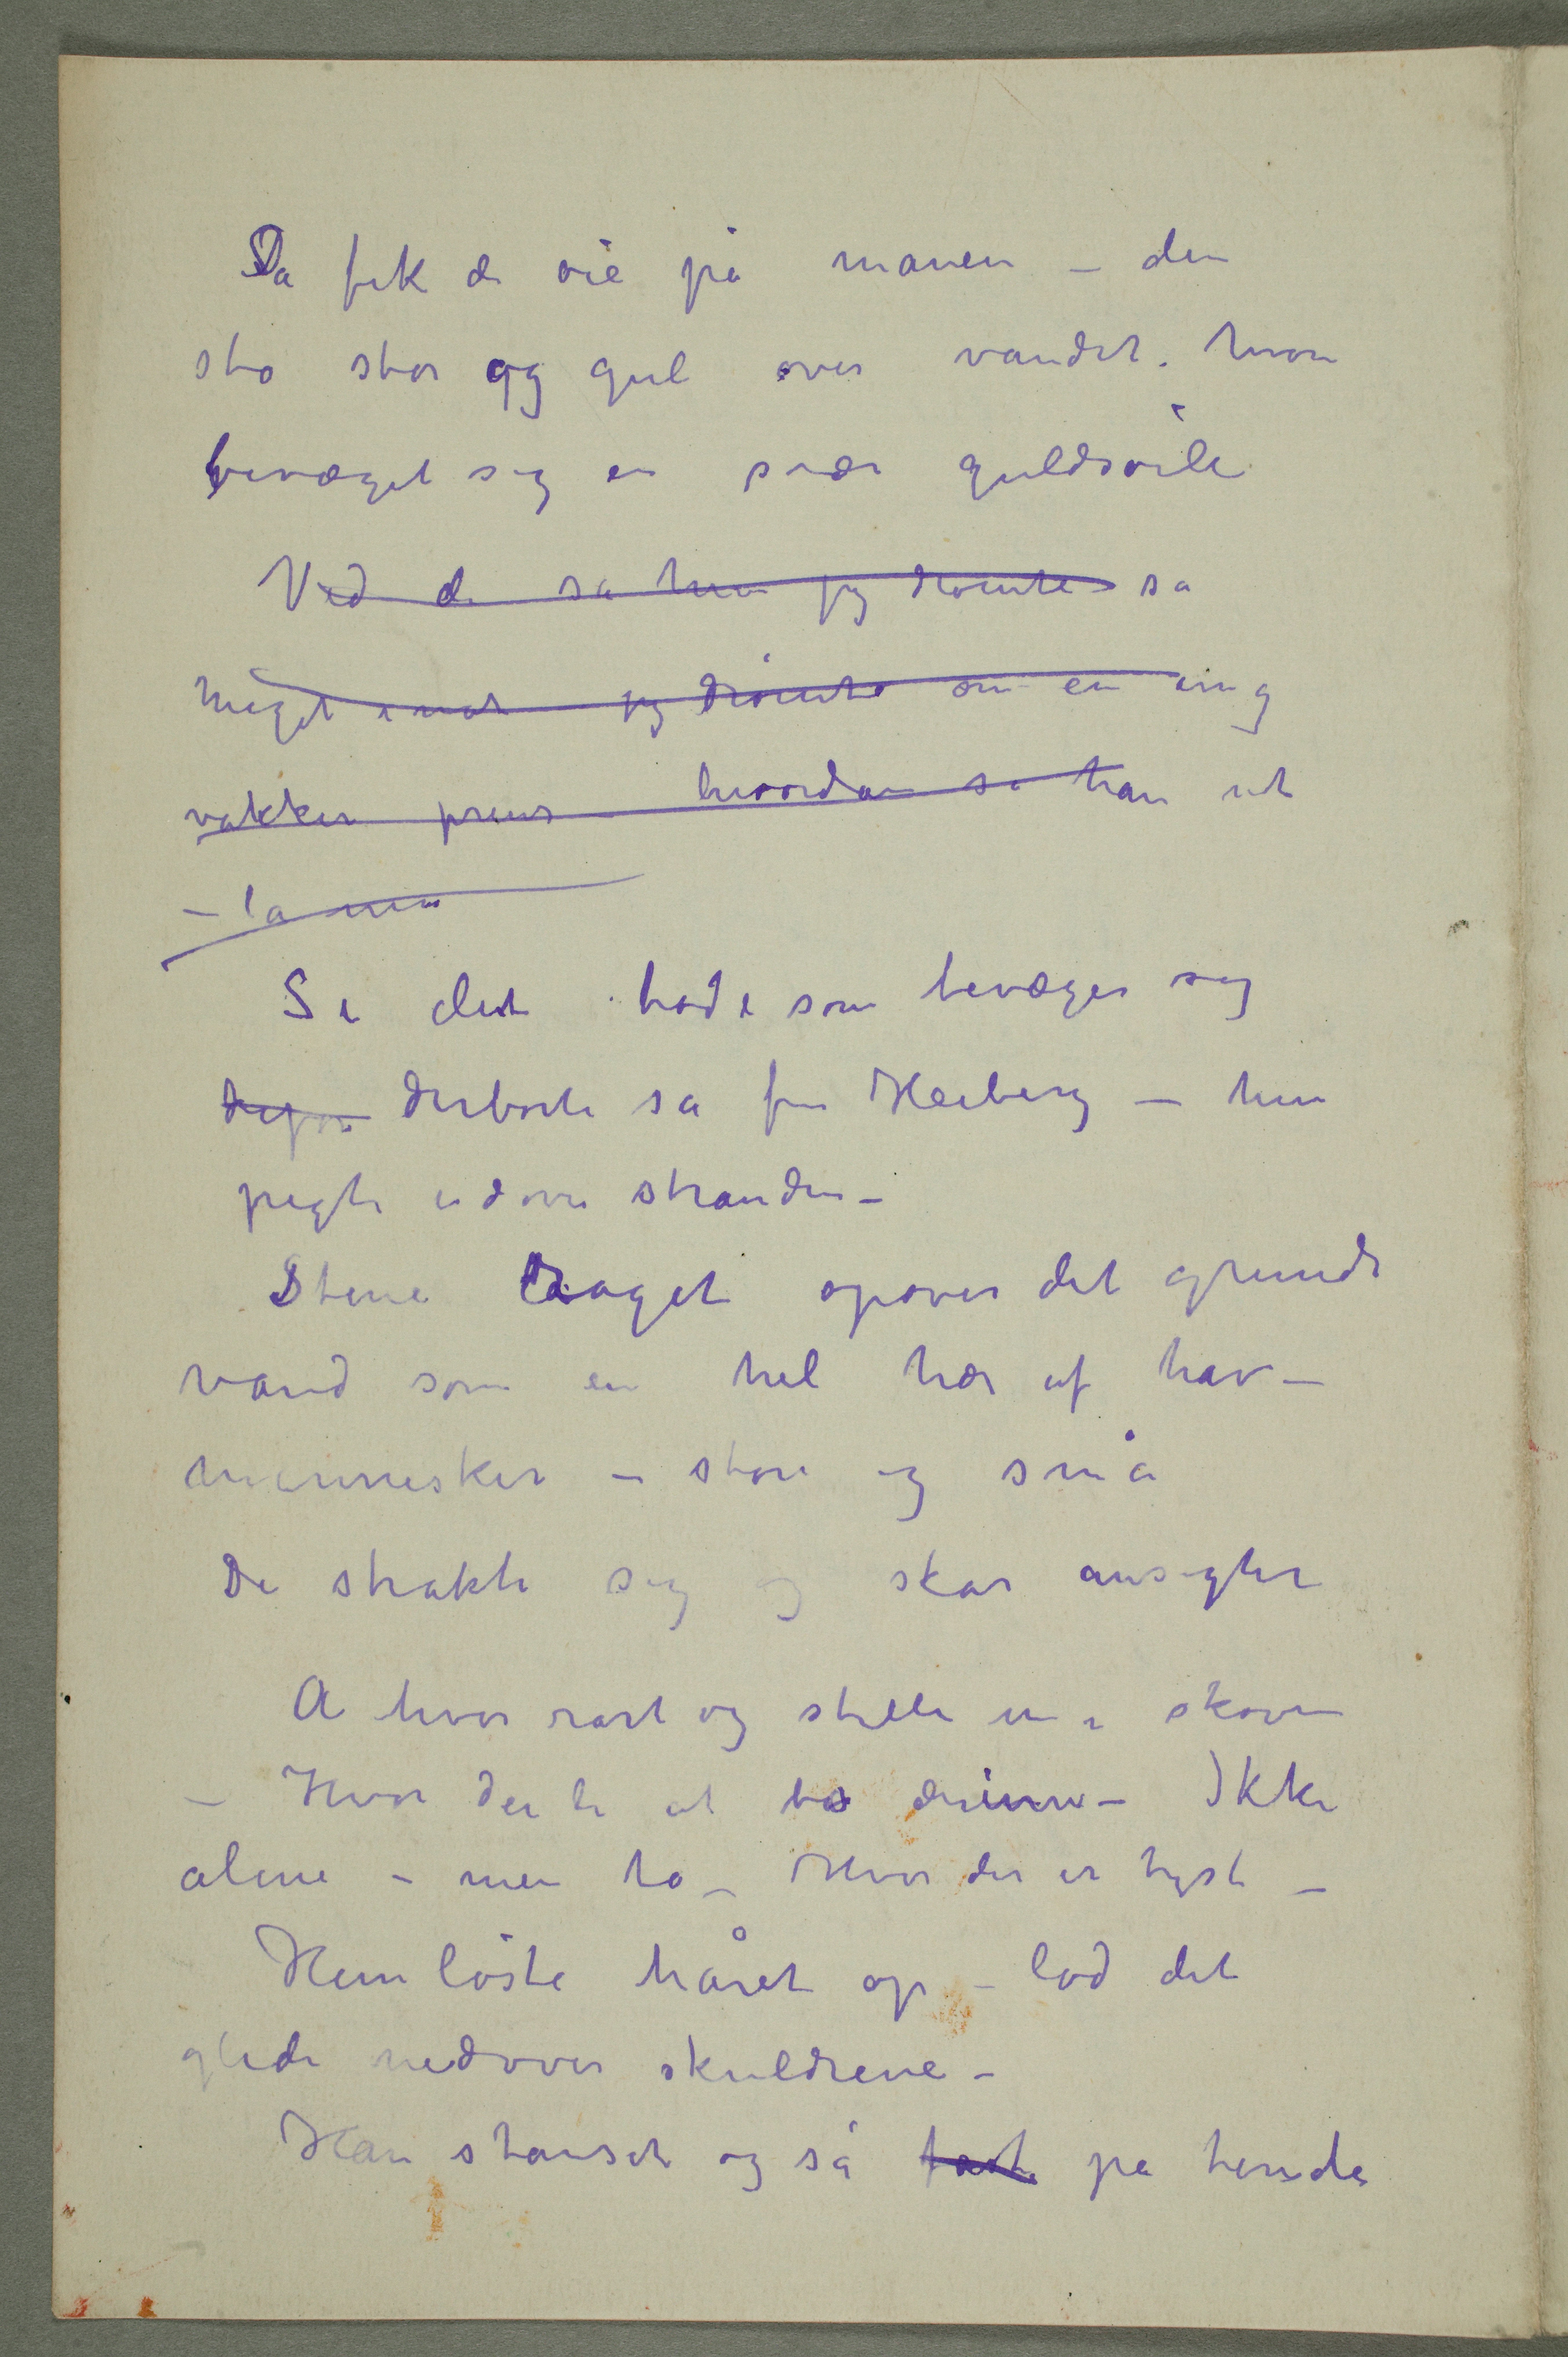 Da fik de øie på månen – den
sto stor og gul over vandet. hvor
bevæget sig en svær guldsøile
Ved de sa hun jeg drømte så
meget inat – jeg drømte om en ung
vakker prins – hvordan så han ut
– la mig
Se det hode som bevæger sig
derborte sa fru Heiberg – hun
pegte udover stranden –
Stene raget opover det grunde
vand som en hel hær af hav-
mennesker – store og små
De strakte sig og skar ansigter
A hvor rart og stille inne i skoven
– Hvor deilig at bo derinne – Ikke
alene – men to – Hvor der er tyst –
Hun løste håret op – lod det
glide nedover skuldrene –
Han stanset og så fast på hende